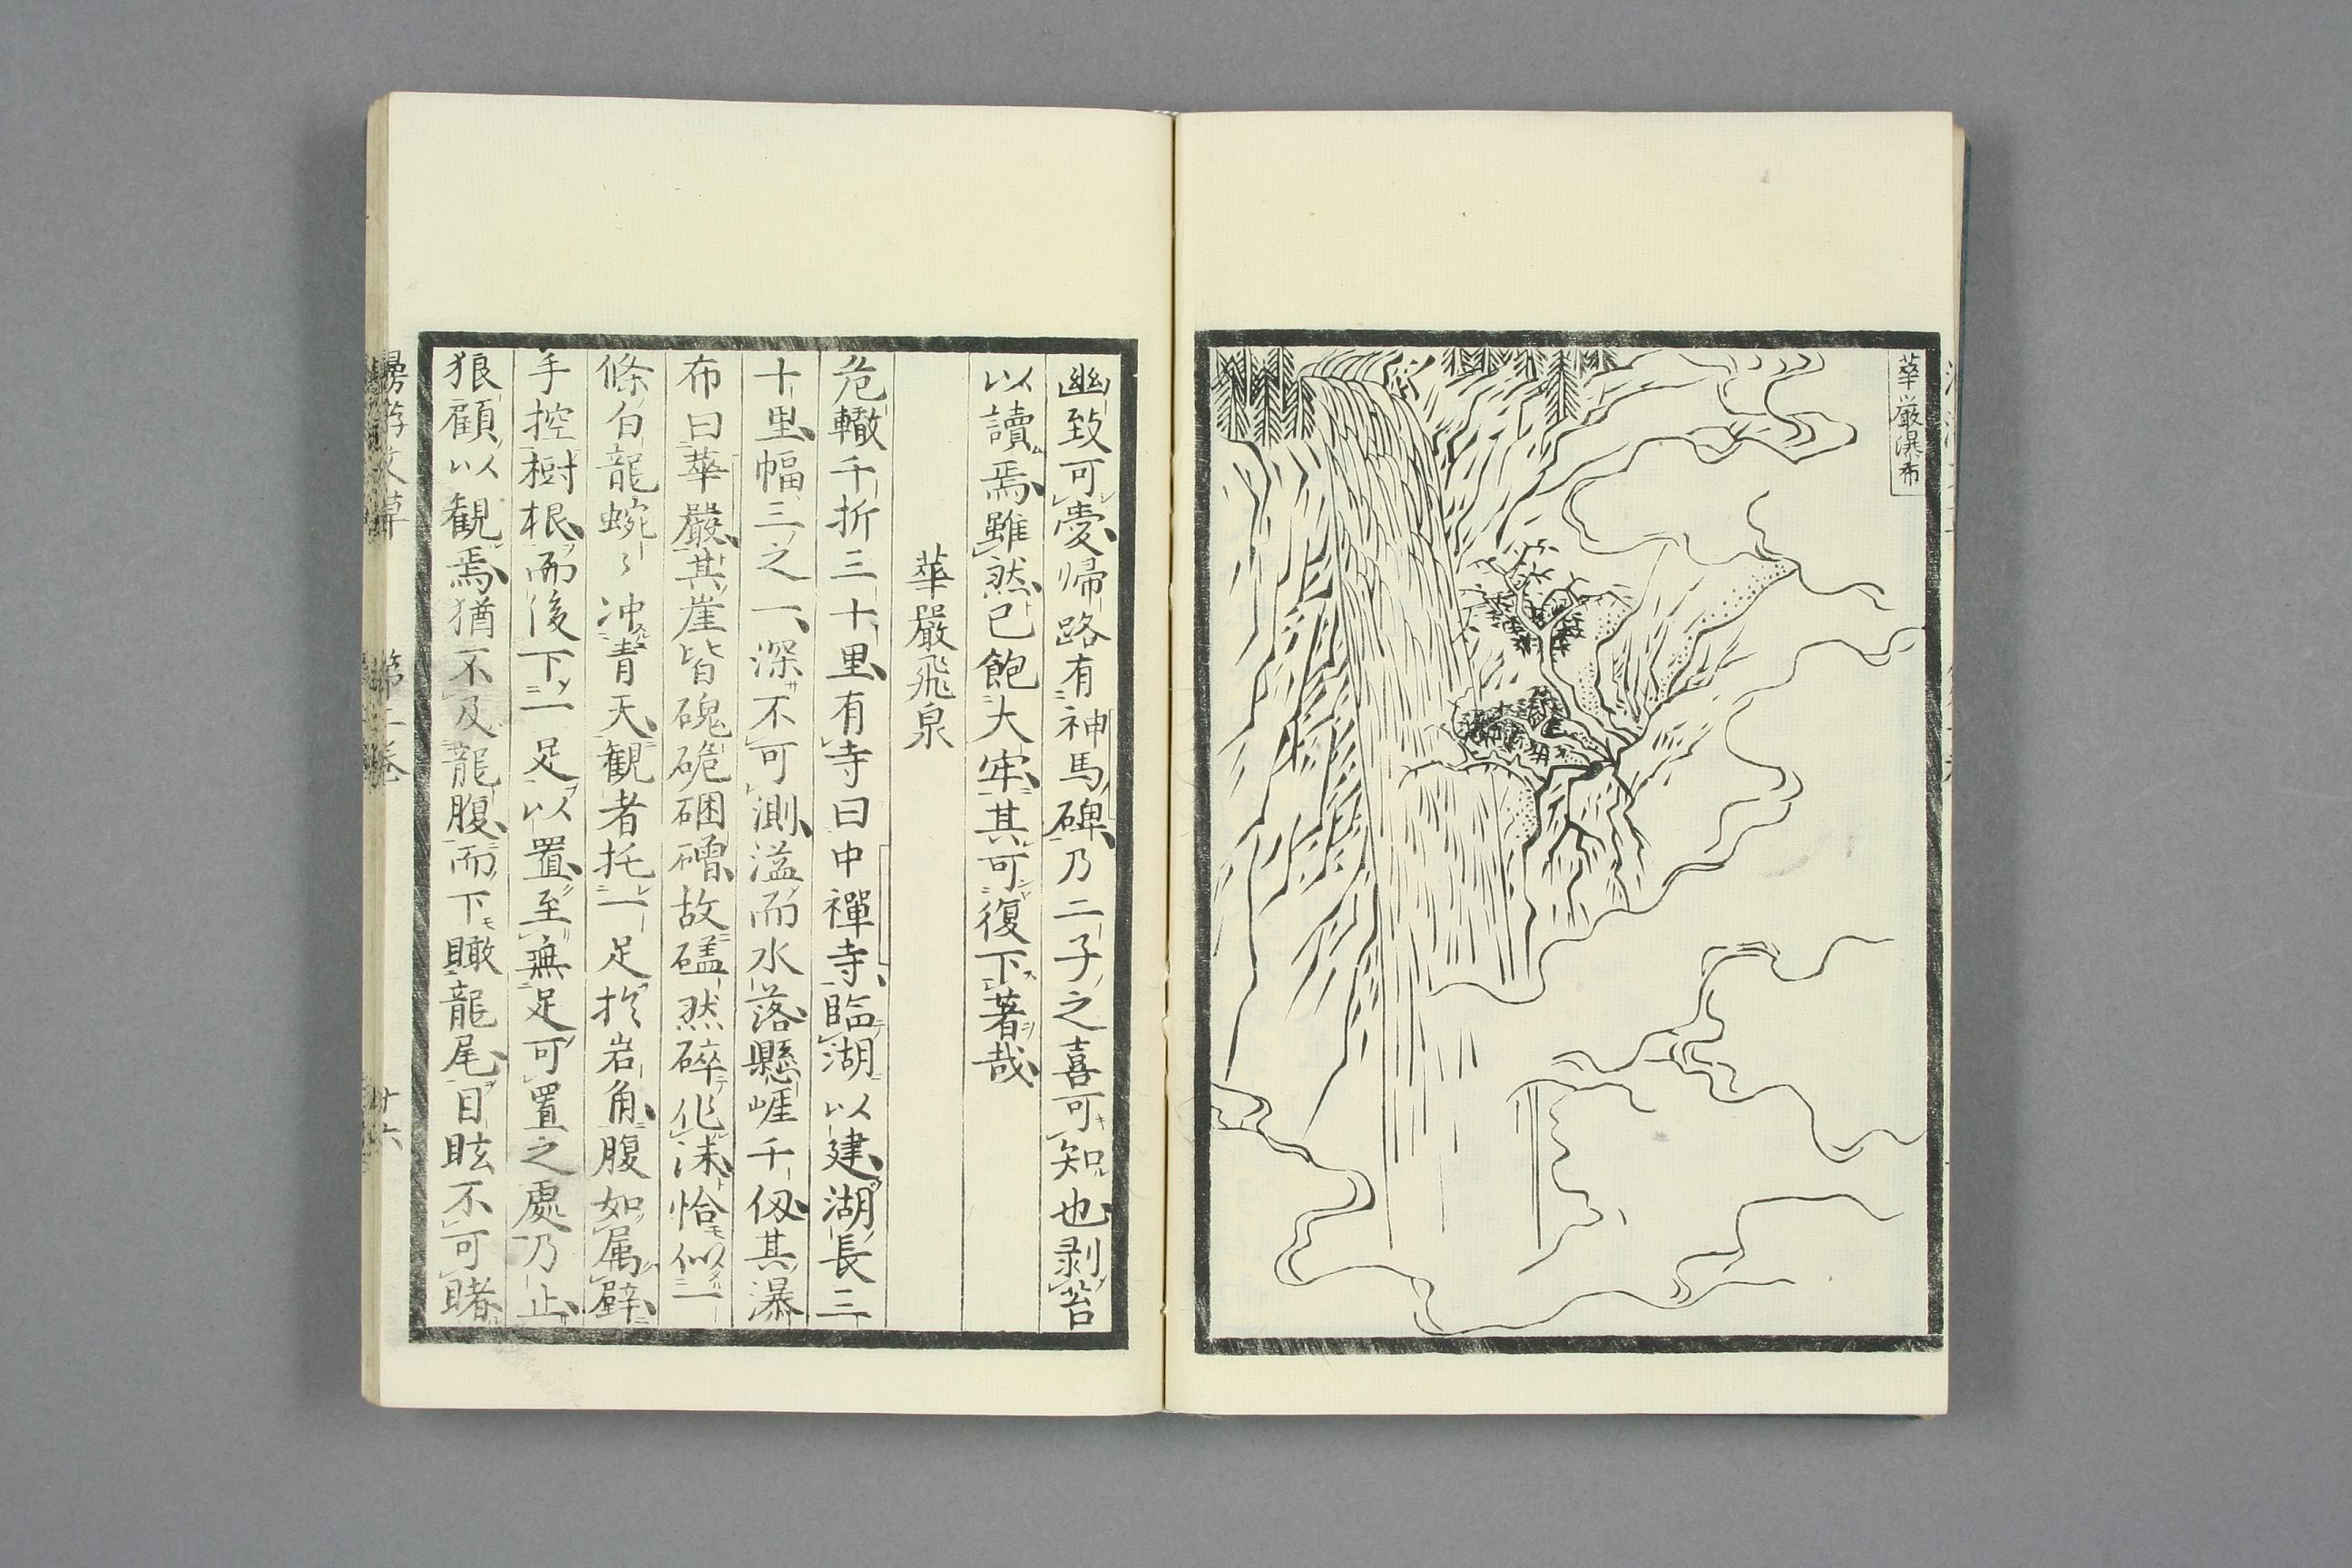 華嚴瀑布
幽致可愛帰路有神馬碑乃二子之喜可知也剥苔
以讀焉雖然已飽大牢其可復下著哉
華嚴飛泉
危轍千折三十里有寺曰中禪寺臨湖以建湖長三
十里幅三之一深不可測溢而水落懸崕千仭其瀑
布曰華嚴其崖皆磈硊硱磳故礚然碎化沫恰似一
條白龍蜿〻冲青天観者托一足扵岩角腹如属壁
手控樹根而後下一足以置至無足可置之處乃止
狼顧以観焉猶不及龍腹而下瞰龍尾目眩不可睹
漫游文草 第二巻 廿六